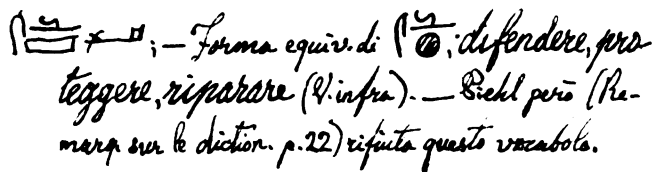 ; — Forma equiv. di ; difendere, pro
teggere, riparare (V. infra). — Piehl però (Re-
marq. sur le diction. p. 22) rifiuta questo vocabolo.